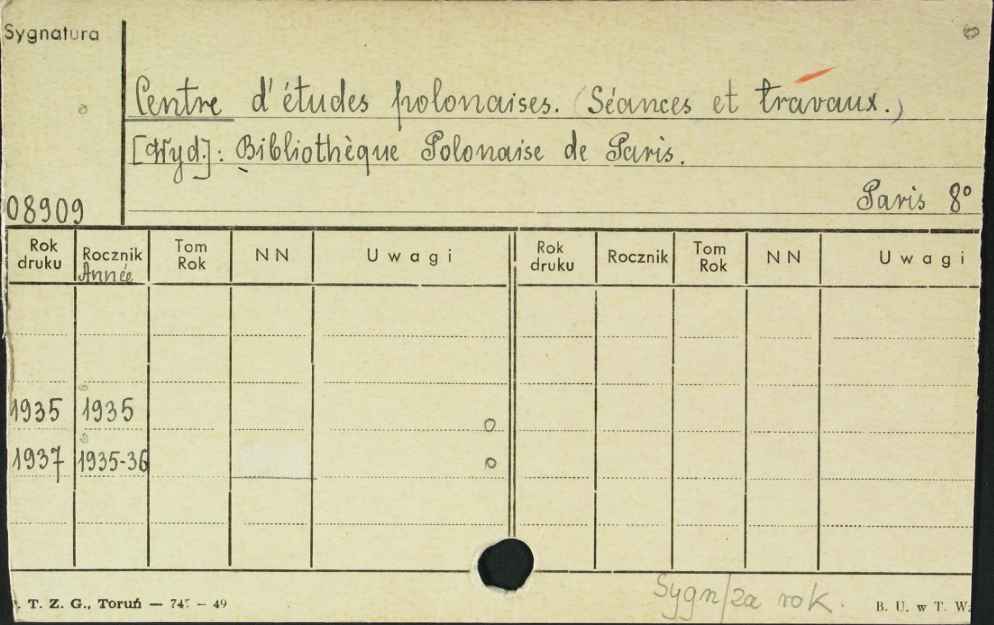 Sygnatura
Centre d'études polonaises. (Séances et travaux.)
[Wyd.]: Bibliothèque Polonaise de Paris.
08909
Paris 8°
Rok druku Rocznik Année Tom Rok NN Uwagi Rok druku Rocznik Tom Rok NN Uwagi
1935 1935
1937 1935-36
Sygn/za rok.
. T. Z. G., Toruń — 74 – 49
B. U. w T. W.